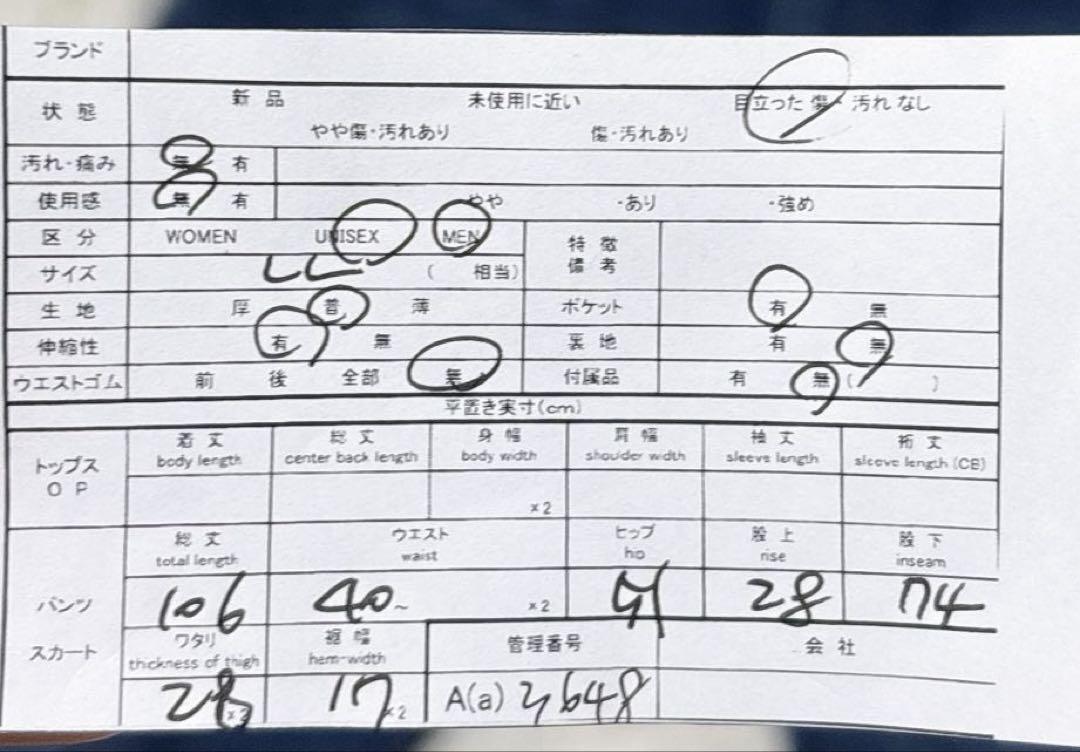 ブランド
状態 新品 未使用に近い 目立った傷・汚れなし
やや傷・汚れあり 傷・汚れあり
汚れ・痛み 無 有
使用感 無 有 ・やや ・あり ・強め
区分 WOMEN UNISEX MEN 特徴備考
サイズ LL ( 相当)
生地 厚 普 薄 ポケット 有 無
伸縮性 有 無 裏地 有 無
ウエストゴム 前 後 全部 無 付属品 有 無 ( )
平置き実寸(cm)
トップス OP 着丈 総丈 身幅 肩幅 袖丈 裄丈
body length center back length body width shoulder width sleeve length sleeve length (CB)
×2
パンツ スカート 総丈 ウエスト ヒップ 股上 股下
total length waist hip rise inseam
106 40~ ×2 28 74
ワタリ 裾幅 管理番号 会社
thickness of thigh hem-width
28 ×2 17 ×2 A(a) 3648